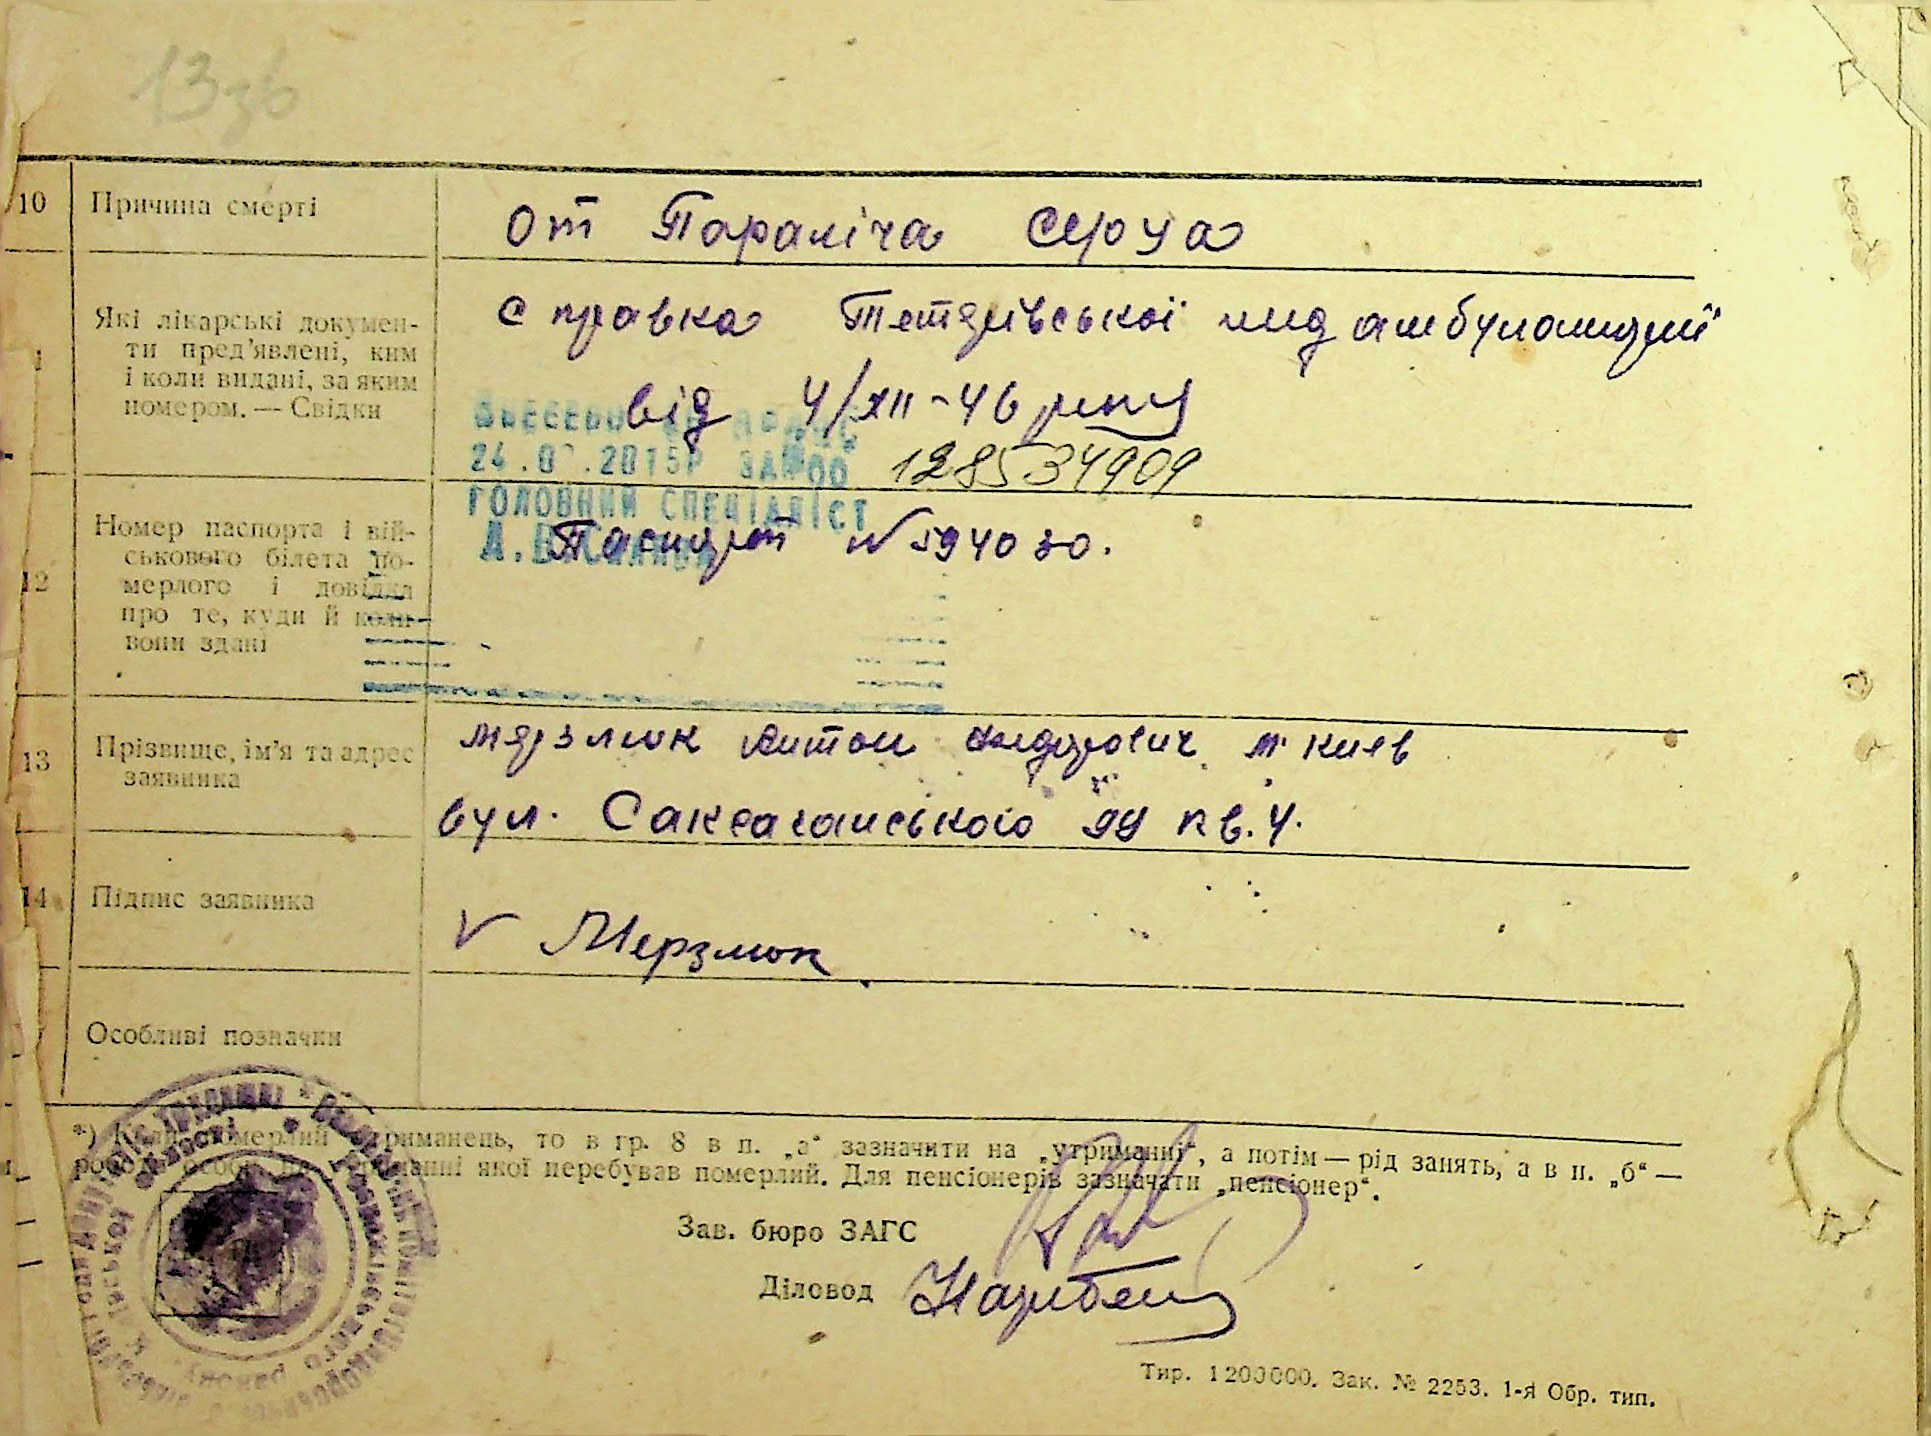 13зв
10 Причина смерті
От Параліча серця
Які лікарські докумен-
ти пред'явлені, ким
і коли видані, за яким
номером. — Свідки
справка Тетіївської мед амбулаторії
від 4/XII-46 року
24.0 .2015р
128534909
ГОЛОВНИЙ СПЕЦІАЛІСТ
12 Номер паспорта і вій-
ськового білета по-
мерлого і довідка
про те, куди й коли
вони здані
Паспорт №
13 Прізвище, ім'я та адрес
заявника
Мерзлюк Антон м. Киев
вул. Саксаганського 99 кв. 4.
14 Підпис заявника
V Мерзлюк
Особливі позначки
*) Коли померлий утриманець, то в гр. 8 в п. „а“ зазначити на „утриманні“, а потім — рід занять, а в п. „б“ —
особи, на утриманні якої перебував померлий. Для пенсіонерів зазначати „пенсіонер“.
Зав. бюро ЗАГС
Діловод
Тир. 1200000. Зак. № 2253. 1-а Обр. тип.